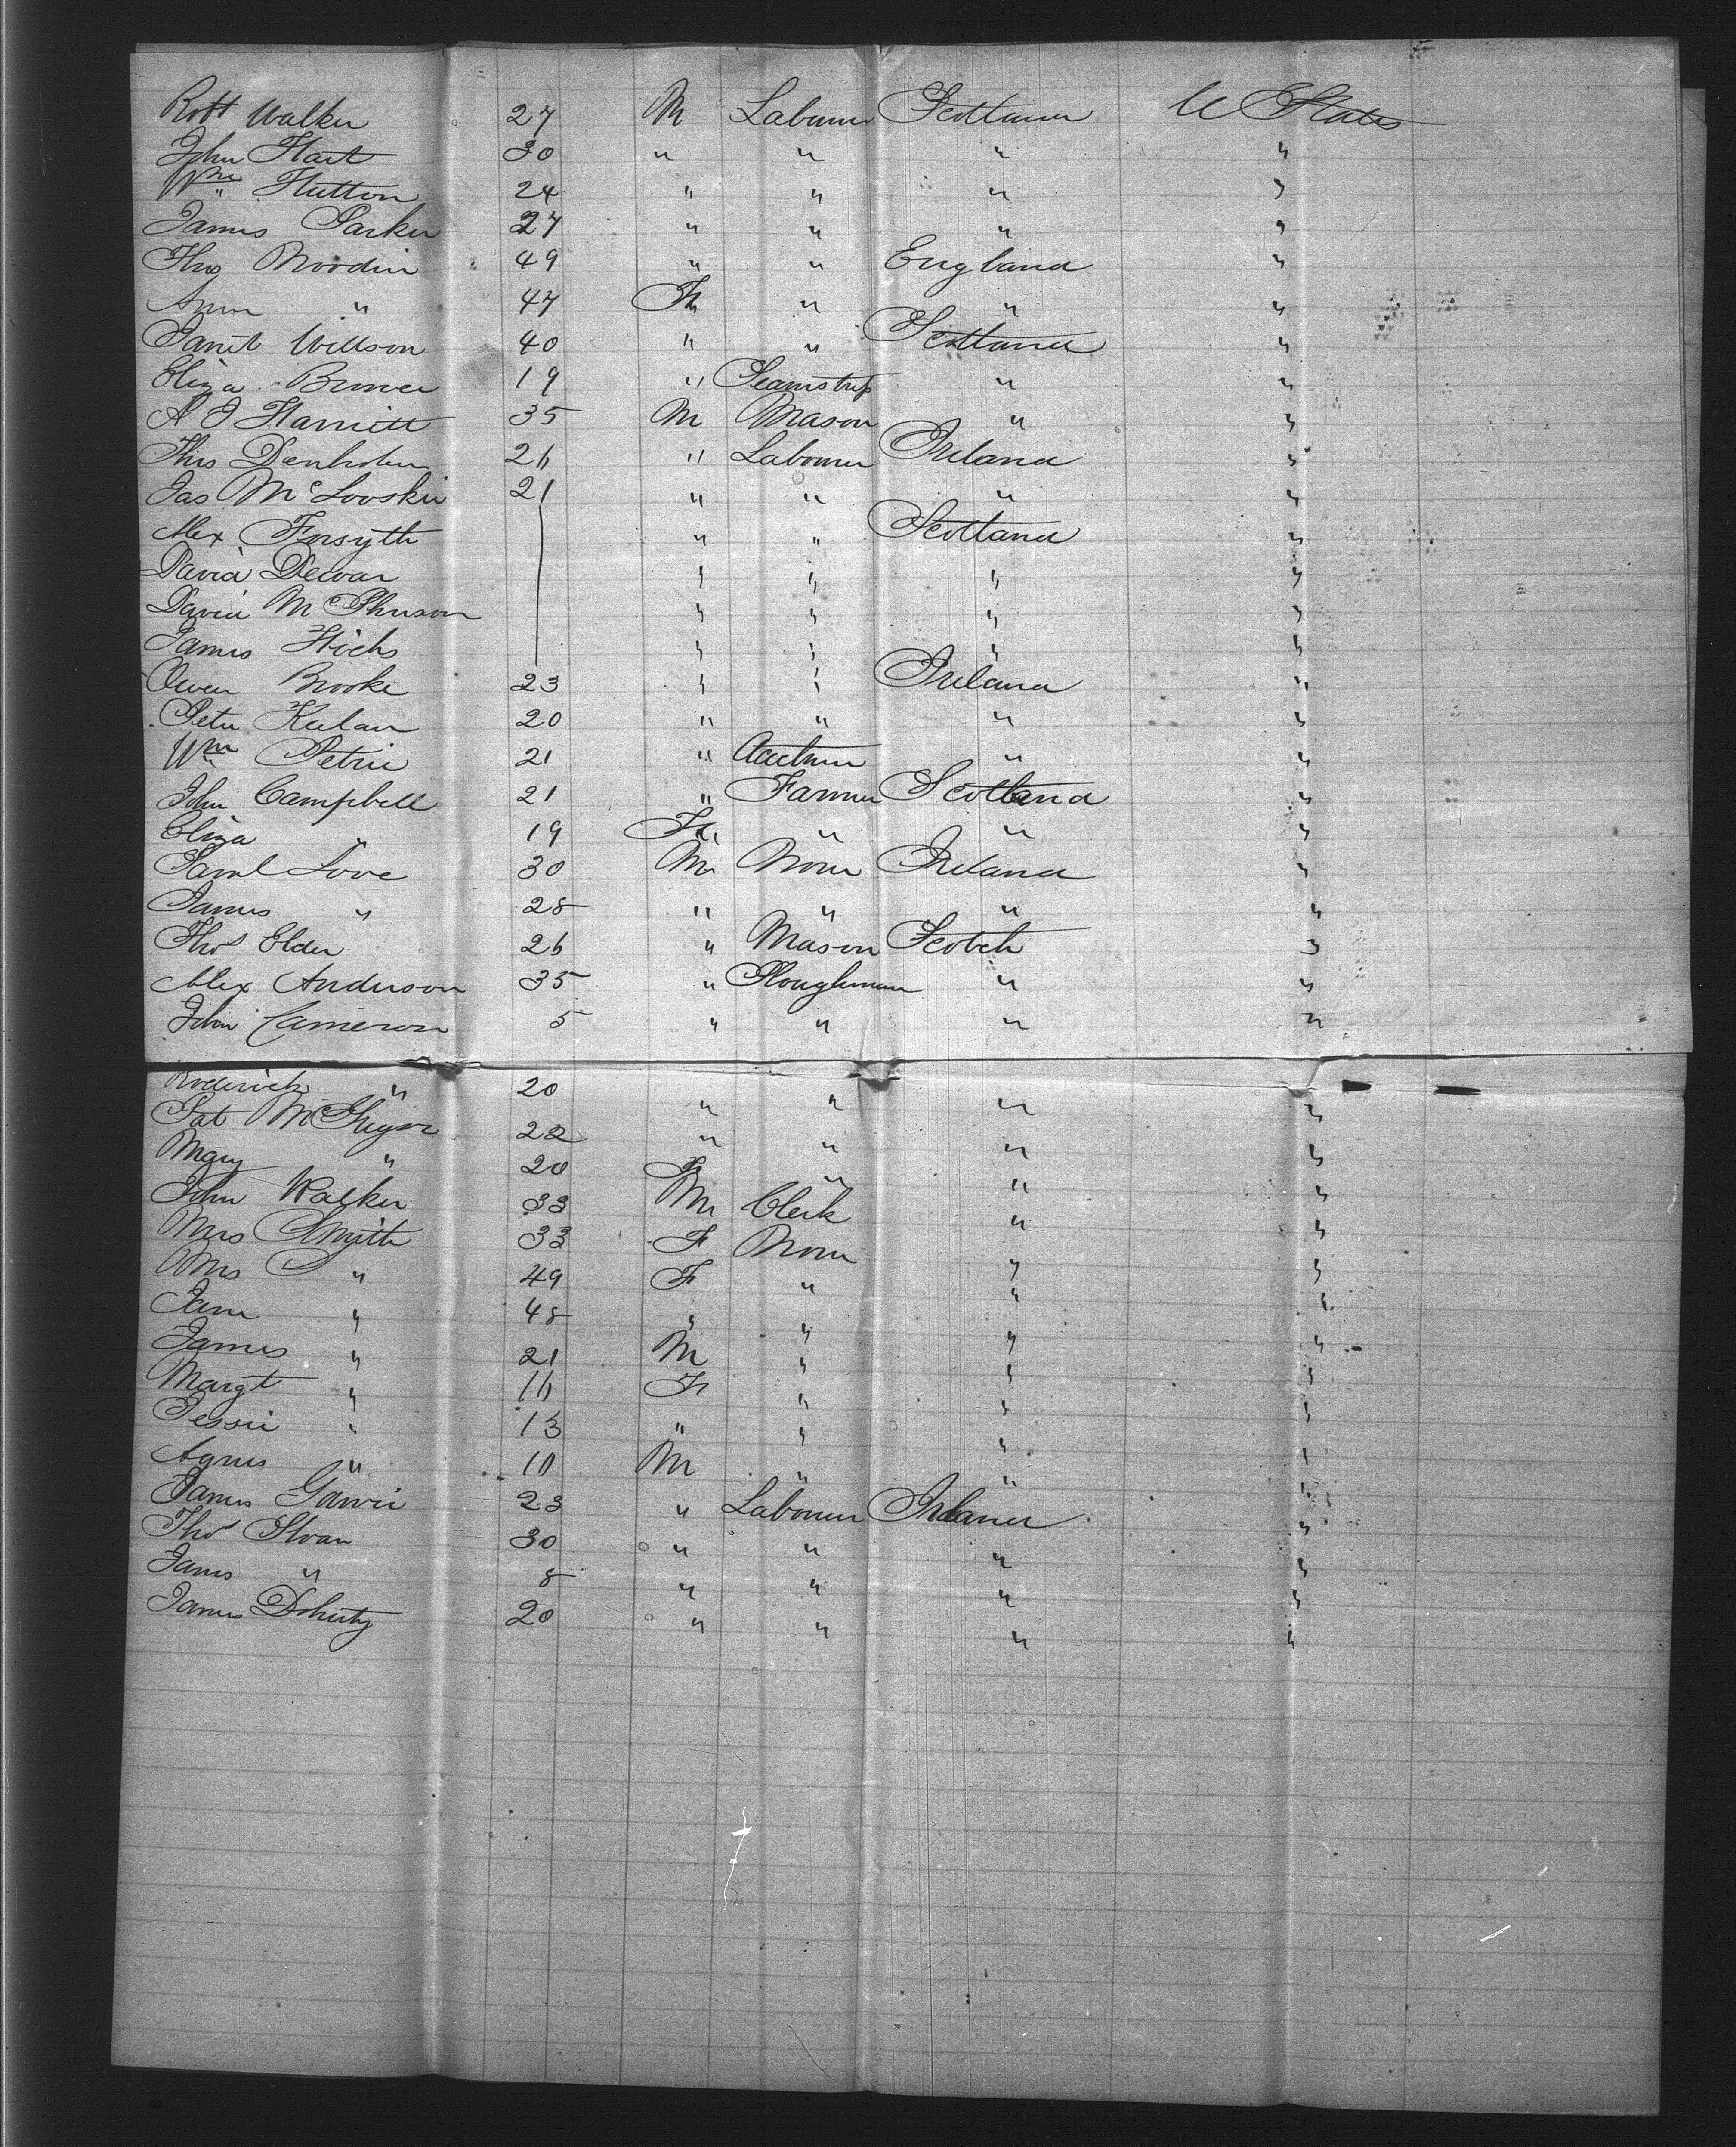 Robt Walker 27 M Labourer Scotland U States
John Hart 30 " " " "
Wm Hutton 24 " " " "
James Parker 27 " " " "
Thos 49 " " England "
Anna " 47 F " " "
Janet Willson 40 " " Scotland "
Eliza 19 " Seamstress " "
A J 35 M Mason " "
Thos Denholm 26 " Labourer Ireland "
Jas 21 " " " "
Alex Forsyth " " Scotland "
David Dewar " " " "
David McPherson " " " "
James Hicks " " " "
Owen Brooke 23 " " Ireland "
Peter 20 " " " "
Wm Petrie 21 " " "
John Campbell 21 " Farmer Scotland "
Eliza " 19 F " " "
Saml Love 30 M None Ireland "
James " 28 " " " "
Thos Elder 26 " Mason Scotch "
Alex Anderson 35 " Ploughman " "
John Cameron 5 " " " "
Roderick " 20 " " " "
Pat 22 " " " "
Mary " 20 F " " "
John Walker 33 M Clerk " "
Mrs Smith 33 F None " "
Mrs " 49 F " " "
Jane " 48 " " " "
James " 21 M " " "
Margt " 16 F " " "
Jessie " 13 " " " "
Agnes " 10 M " " "
James 23 " Labourer Ireland "
Thos Sloan 30 " " " "
James " 8 " " " "
James Doherty 20 " " " "